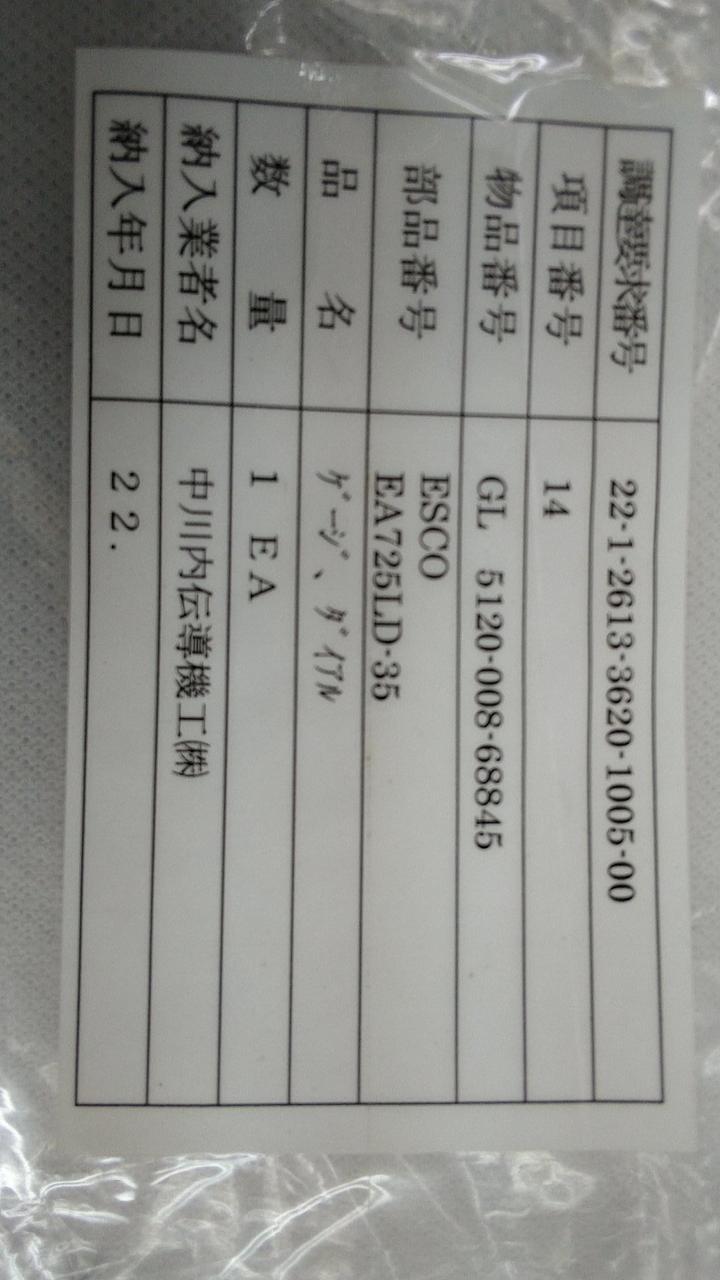 調達要求番号 22-1-2613-3620-1005-00
項目番号 14
物品番号 GL 5120-008-68845
部品番号 ESCO
EA725LD-35
品 名 ｹﾞｰｼﾞ、ﾀﾞｲｱﾙ
数 量 1 EA
納入業者名 中川内伝導機工㈱
納入年月日 22.